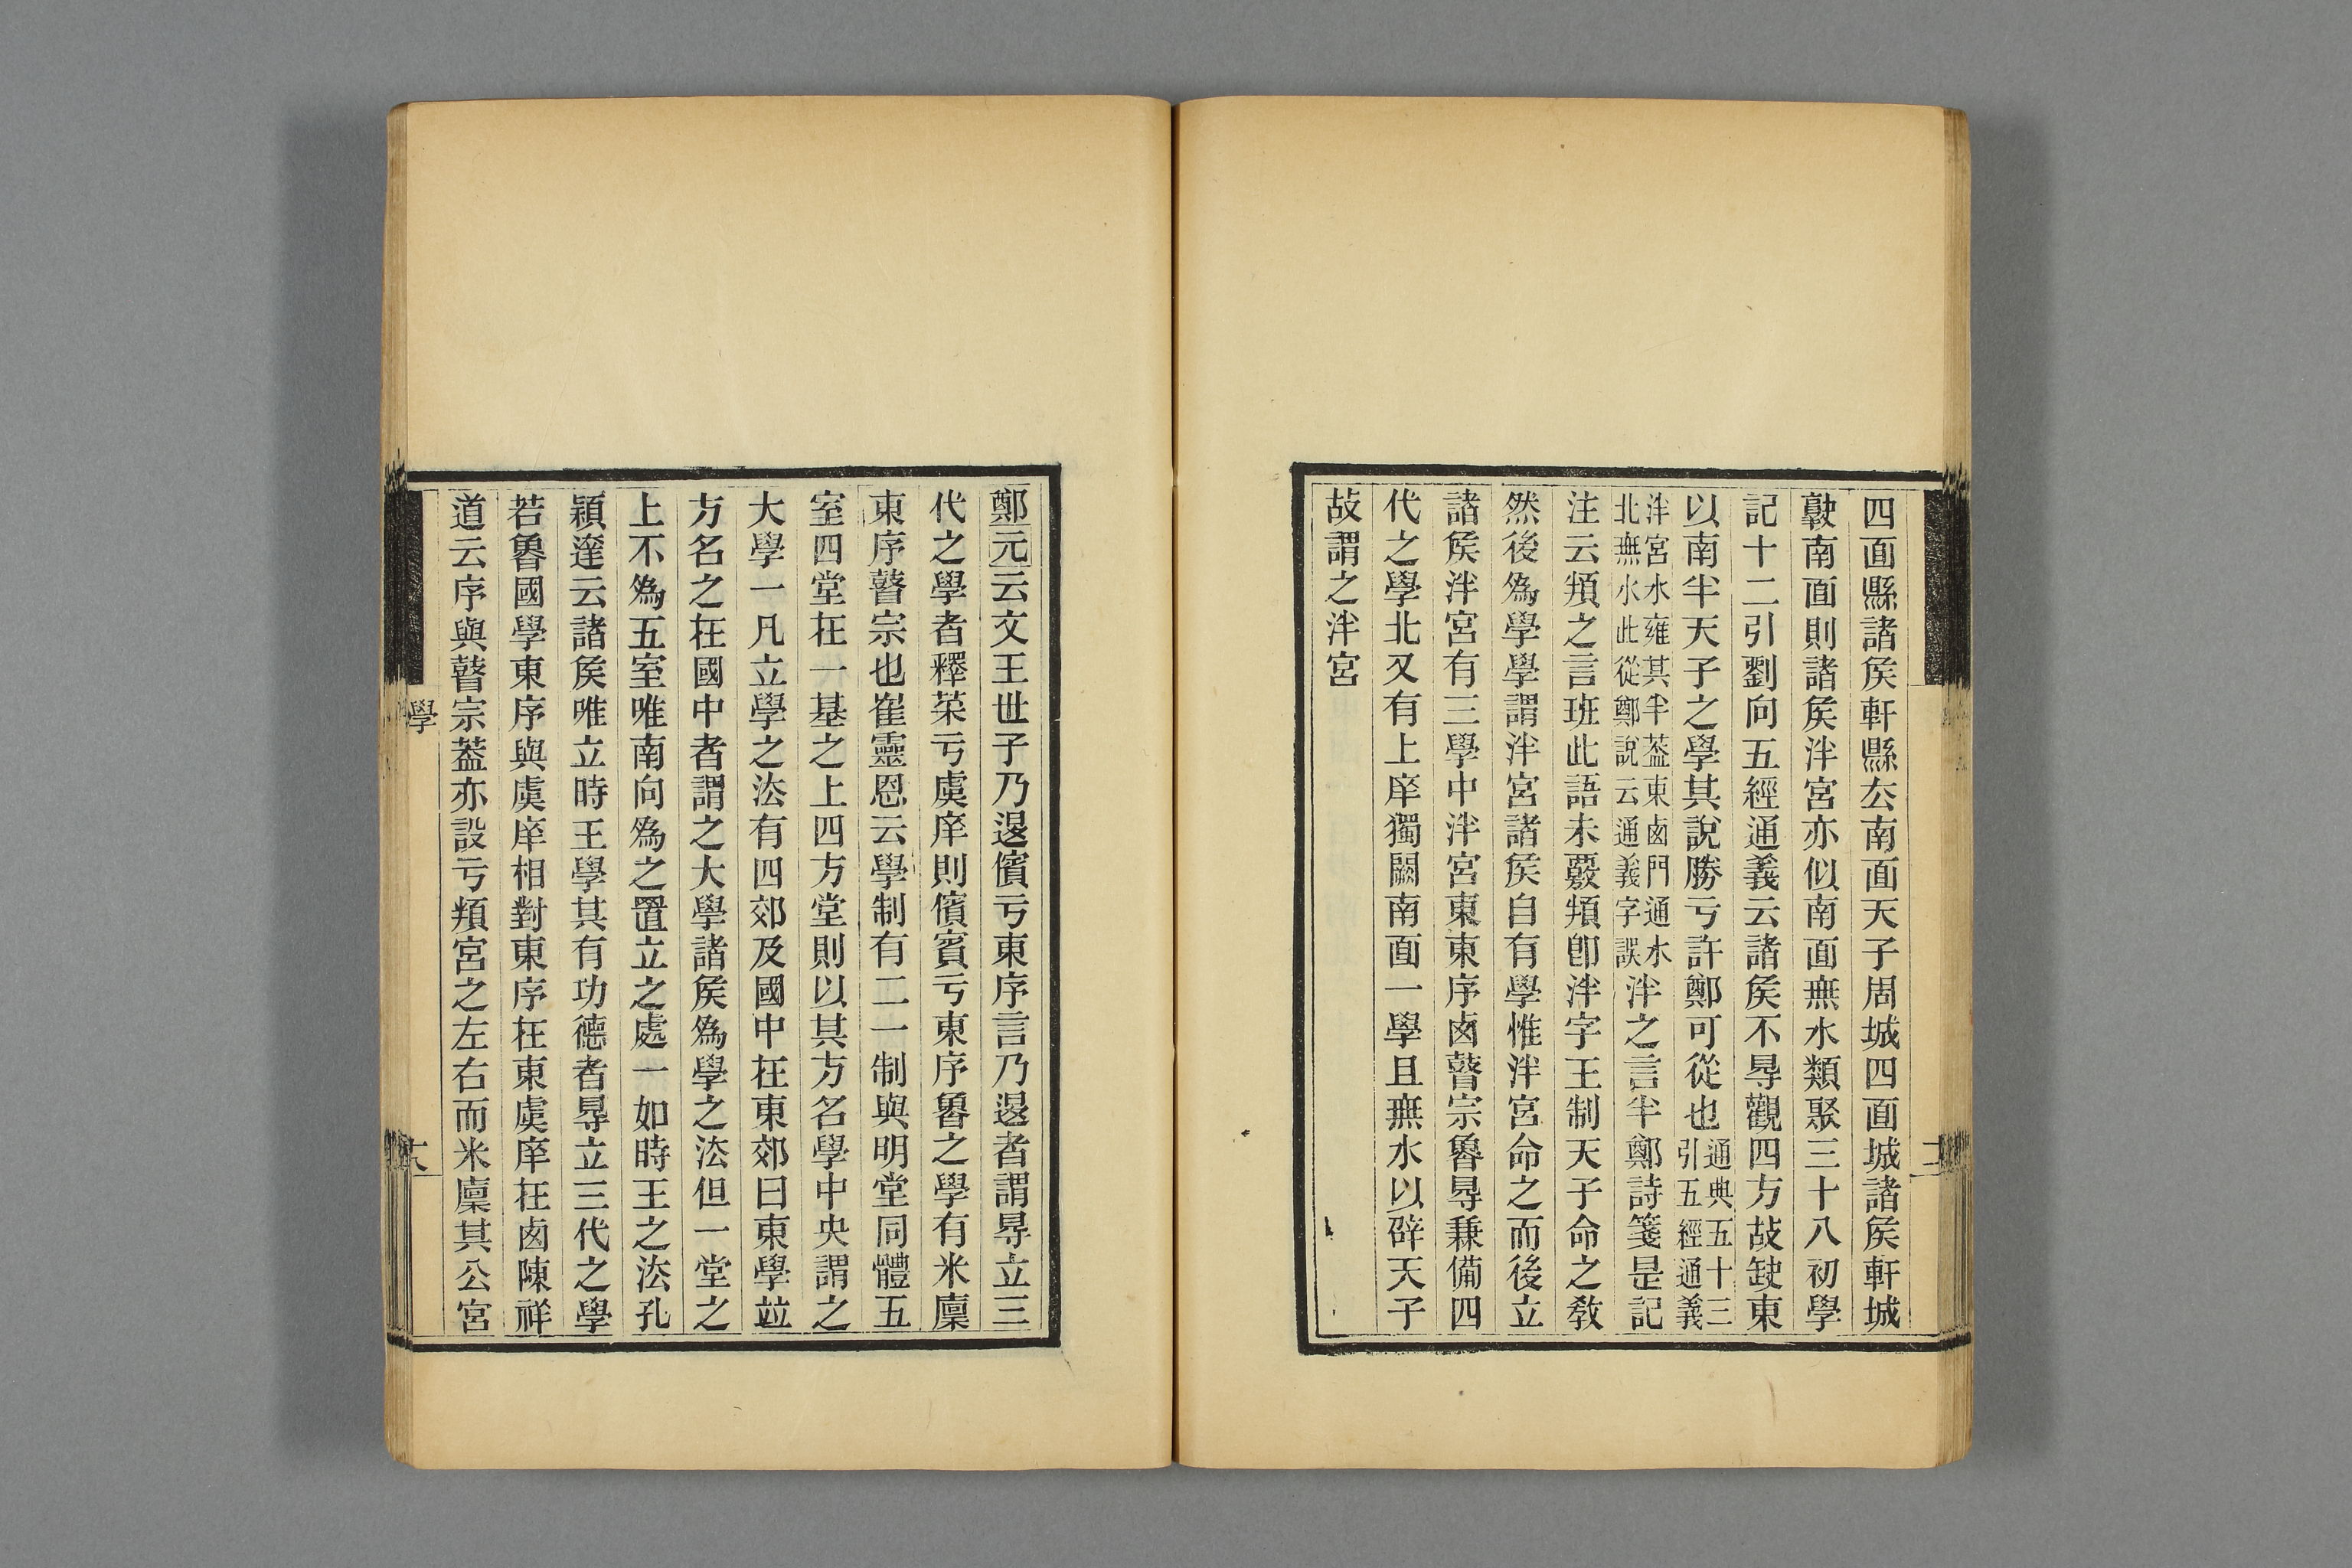 四面縣諸矦軒縣厺南面天子周城四面城諸矦軒城
㪣南面則諸矦泮宮亦佀南面無水類聚三十八初學
記十二引劉向五經通義云諸矦不㝵觀四方故缺東
以南半天子之學其說勝亏許鄭可從也通典五十三
引五經通義
泮宮水雍其半葢東卤門通水
北無水此從鄭說云通義字誤
泮之言半鄭詩箋是記
注云頖之言班此語未覈頖卽泮字王制天子命之敎
然後爲學學謂泮宮諸矦自有學惟泮宮命之而後立
諸矦泮宮有三學中泮宮東東序卤瞽宗魯㝵兼僃四
代之學北又有上庠獨闕南面一學且無水以辟天子
故謂之泮宮
鄭元云文王世子乃退儐亏東序言乃退者謂㝵立三
代之學者釋菜亏虞庠則儐賓亏東序魯之學有米廩
東序瞽宗也崔靈恩云學制有二一制與明堂同體五
室四堂在一基之上四方堂則以其方名學中央謂之
大學一凡立學之法有四郊及國中在東郊曰東學竝
方名之在國中者謂之大學諸矦爲學之法但一堂之
上不爲五室唯南向爲之置立之處一如時王之法孔
穎達云諸矦唯立時王學其有功德者㝵立三代之學
若魯國學東序與虞庠相對東序在東虞庠在卤陳祥
道云序與瞽宗葢亦設亏頖宮之左右而米廩其公宮
學